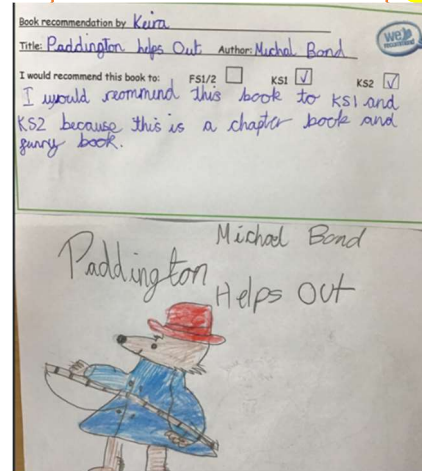 Book recommendation by Keira
Title: Paddington helps Out Author: Michal Bond
we
recommend
I would recommend this book to: FS1/2 KS1 KS2
I would reommend this book to KS1 and
KS2 because this is a chapter book and
funny book.
Michael Bond
Paddington
Helps Out